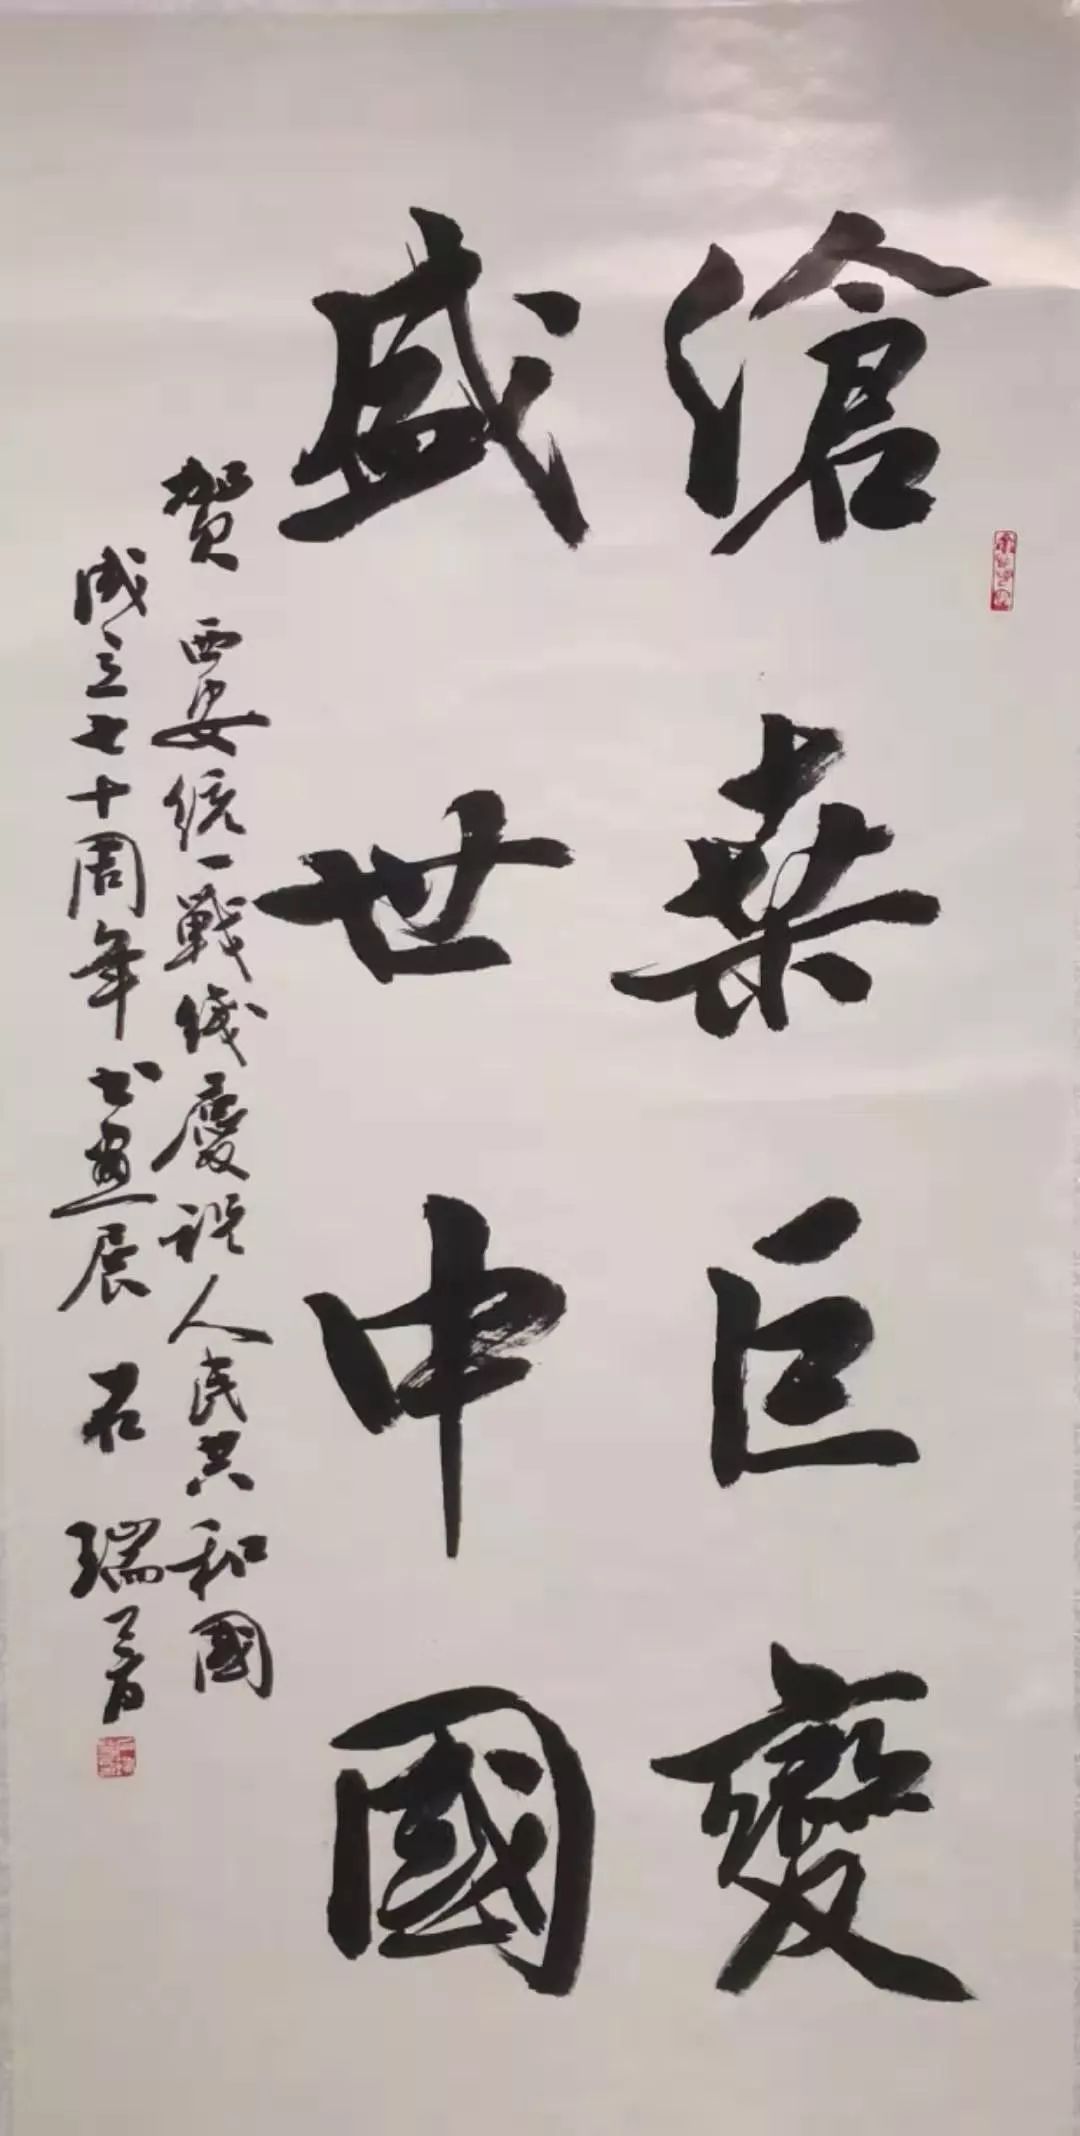 滄桑巨變
盛世中國
賀西安統一戰线慶祝人民共和國
成立七十周年书畫展 石瑞芳